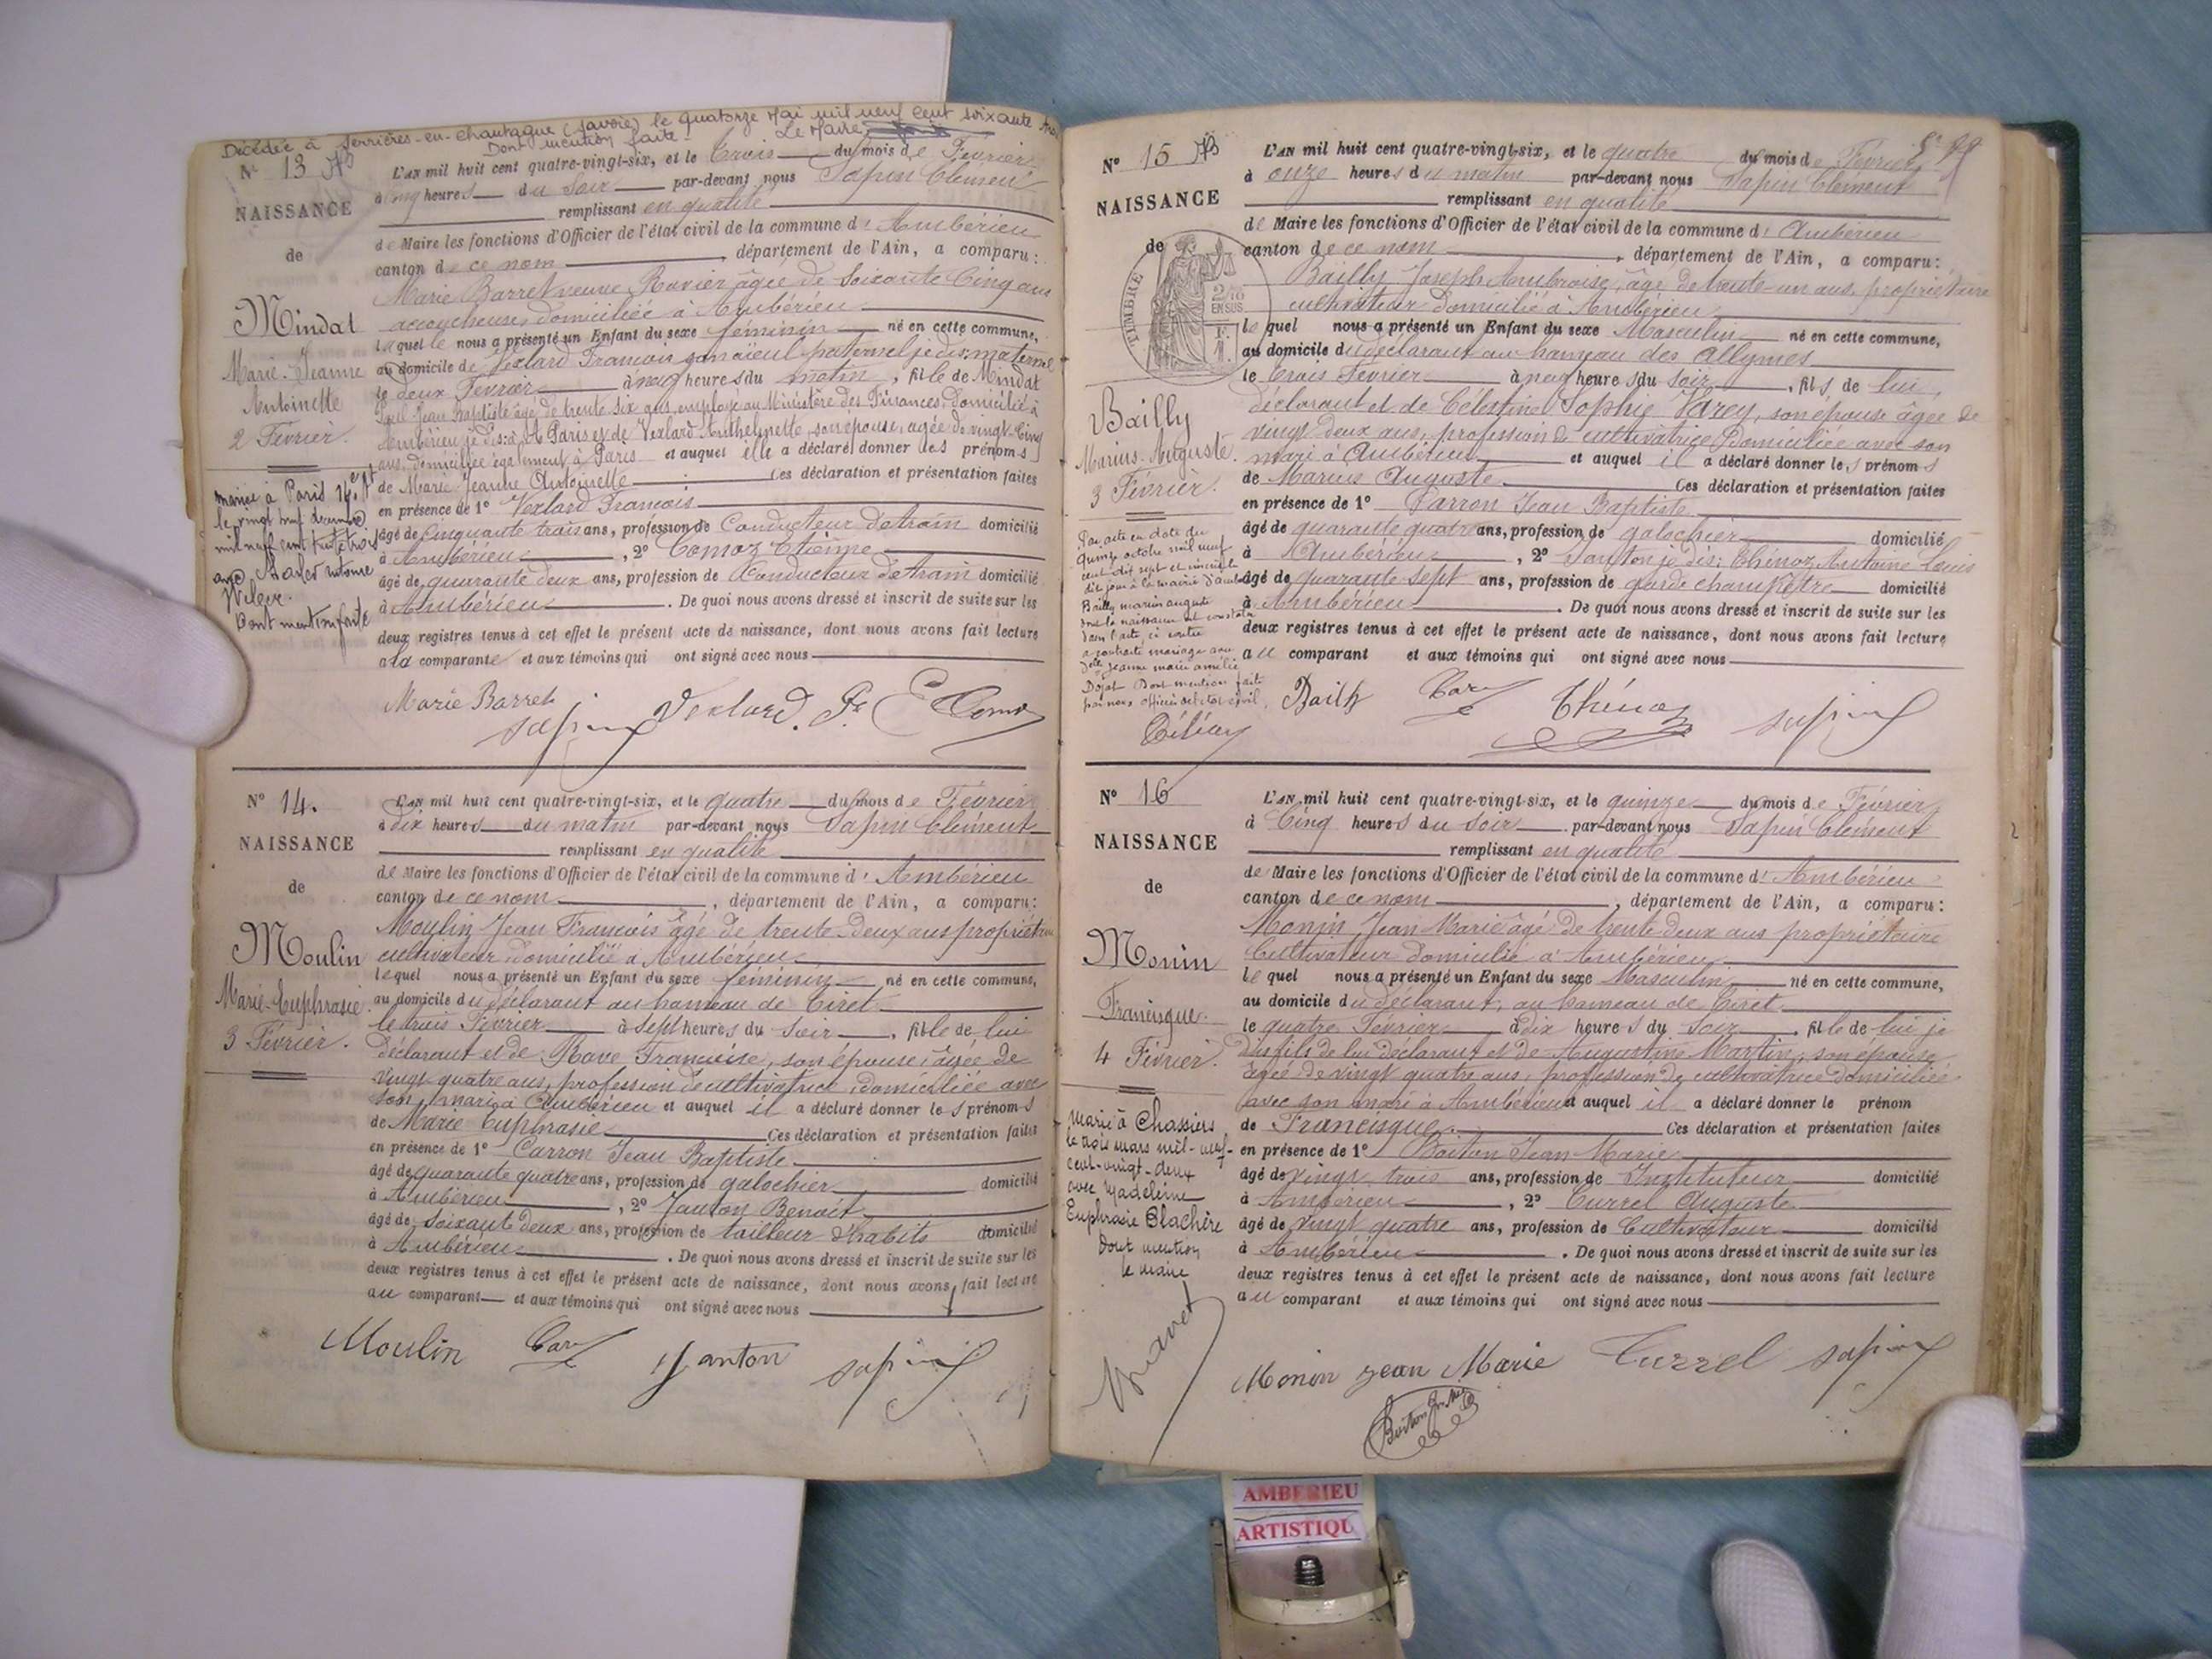 Décédée à Serrières-en-Chautagne (Savoie) le quatorze Mai mil neuf cent soixante
Dont mention faite - Le Maire
N° 13
NAISSANCE
de
Mindat
Marie-Jeanne
Antoinette
2 Février.
mariée à Paris 14e
le vingt neuf décembre
mil neuf cent trente trois
avec
Dont mention faite
L'AN mil huit cent quatre-vingt-six, et le trois du mois de Février
à cinq heures du soir par-devant nous Sapin Clément
remplissant en qualité
de Maire les fonctions d'Officier de l'état civil de la commune d'Ambérieu
canton de ce nom, département de l'Ain, a comparu:
Marie Barret veuve Ravier âgée de soixante cinq ans
accoucheuse, domiciliée à Ambérieu
laquelle nous a présenté un Enfant du sexe féminin né en cette commune,
au domicile de Vexlard François son aïeul paternel je dis maternel
le deux Février à neuf heures du matin, fille de Mindat
Jean Baptiste âgé de trente six ans, employé au Ministère des Finances, domicilié à
Ambérieu je dis: à Paris et de Vexlard Anthelmette, son épouse, agée de vingt cinq
ans, domiciliée également à Paris et auquel elle a déclaré donner les prénoms
de Marie Jeanne Antoinette Ces déclaration et présentation faites
en présence de 1° Vexlard François
âgé de cinquante trois ans, profession de Conducteur de train domicilié
à Ambérieu, 2° Comoz Etienne
âgé de quarante deux ans, profession de Conducteur de train domicilié
à Ambérieu. De quoi nous avons dressé et inscrit de suite sur les
deux registres tenus à cet effet le présent acte de naissance, dont nous avons fait lecture
a la comparante et aux témoins qui ont signé avec nous
Marie Barret
Sapin Vexlard. Fs E Comoz
N° 14.
NAISSANCE
de
Moulin
Marie-Euphrasie
3 Février.
L'AN mil huit cent quatre-vingt-six, et le quatre du mois de Février
à dix heures du matin par-devant nous Sapin Clément
remplissant en qualité
de Maire les fonctions d'Officier de l'état civil de la commune d'Ambérieu
canton de ce nom, département de l'Ain, a comparu:
Moulin Jean François âgé de trente-deux ans propriétaire
cultivateur domicilié à Ambérieu
lequel nous a présenté un Enfant du sexe féminin né en cette commune,
au domicile du déclarant au hameau de Tiret
le trois Février à sept heures du soir, fille de lui
déclarant et de Rave Françoise, son épouse, âgée de
vingt quatre ans, profession de cultivatrice, domiciliée avec
son mari à Ambérieu et auquel il a déclaré donner les prénoms
de Marie Euphrasie Ces déclaration et présentation faites
en présence de 1° Carron Jean Baptiste
âgé de quarante quatre ans, profession de galochier domicilié
à Ambérieu, 2° Janton Benoit
âgé de soixante deux ans, profession de tailleur d'habits domicilié
à Ambérieu. De quoi nous avons dressé et inscrit de suite sur les
deux registres tenus à cet effet le présent acte de naissance, dont nous avons fait lecture
au comparant et aux témoins qui ont signé avec nous
Moulin Car Janton Sapin
N° 15
NAISSANCE
de
TIMBRE
2/10
EN SUS
Bailly
Marius-Auguste.
3 Février.
Par acte en date du
quinze octobre mil neuf
cent dix sept et inscrit
Bailly marius auguste
dont la naissance est constatée
dans l'acte ci contre
a contracté mariage avec
Delle Jeanne marie amélie
Dojat Dont mention faite
par nous officier de l'état civil,
L'AN mil huit cent quatre-vingt-six, et le quatre du mois de Février
à onze heures du matin par-devant nous Sapin Clément
remplissant en qualité
de Maire les fonctions d'Officier de l'état civil de la commune d'Ambérieu
canton de ce nom, département de l'Ain, a comparu:
Bailly Joseph Ambroise, âgé de trente-un ans, propriétaire
cultivateur domicilié à Ambérieu
lequel nous a présenté un Enfant du sexe Masculin né en cette commune,
au domicile du déclarant au hameau des Allymes
le trois Février à neuf heures du soir, fils de lui,
déclarant et de Célestine Sophie Varey, son épouse âgée de
vingt deux ans, profession de cultivatrice domiciliée avec son
mari à Ambérieu et auquel il a déclaré donner les prénoms
de Marius Auguste Ces déclaration et présentation faites
en présence de 1° Carron Jean Baptiste
âgé de quarante quatre ans, profession de galochier domicilié
à Ambérieu, 2° Janton je dis: Thénoz Antoine Louis
âgé de quarante sept ans, profession de garde champêtre domicilié
à Ambérieu. De quoi nous avons dressé et inscrit de suite sur les
deux registres tenus à cet effet le présent acte de naissance, dont nous avons fait lecture
au comparant et aux témoins qui ont signé avec nous
Bailly Car Thénoz Sapin
N° 16
NAISSANCE
de
Monin
Francisque.
4 Février.
Marié à Chassiers
le trois mars mil-neuf-
cent-vingt-deux
avec Madeleine
Euphrasie Blachère
Dont mention
le maire
L'AN mil huit cent quatre-vingt-six, et le quinze du mois de Février
à cinq heures du soir par-devant nous Sapin Clément
remplissant en qualité
de Maire les fonctions d'Officier de l'état civil de la commune d'Ambérieu
canton de ce nom, département de l'Ain, a comparu:
Monin Jean Marie âgé de trente deux ans propriétaire
Cultivateur domicilié à Ambérieu
lequel nous a présenté un Enfant du sexe Masculin né en cette commune,
au domicile du déclarant, au hameau de Tiret
le quatre Février à dix heures du soir, fille de lui je
dis fils de lui déclarant et de Augustine Martin, son épouse,
âgée de vingt quatre ans, profession de cultivatrice domiciliée
avec son mari à Ambérieu et auquel il a déclaré donner le prénom
de Francisque Ces déclaration et présentation faites
en présence de 1° Boiton Jean Marie
âgé de vingt trois ans, profession de Instituteur domicilié
à Ambérieu, 2° Turrel Auguste
âgé de vingt quatre ans, profession de Cultivateur domicilié
à Ambérieu. De quoi nous avons dressé et inscrit de suite sur les
deux registres tenus à cet effet le présent acte de naissance, dont nous avons fait lecture
au comparant et aux témoins qui ont signé avec nous
Monin Jean Marie Turrel Sapin
AMBERIEU
ARTISTIQU